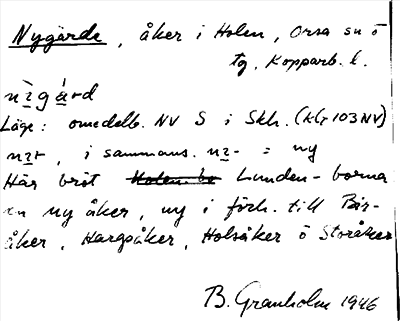 Nygärde, åker i Holen, Orsa sn o
tg, Kopparb. l.
Läge: omedelb. NV S i Skh. (kG 103 NV)
i sammans. = ny
Här bröt Lunden-borna
en ny åker, ny i förh. till Bir-
åker, Hargsåker, Holsåker o Storåker
B. Granholm 1946